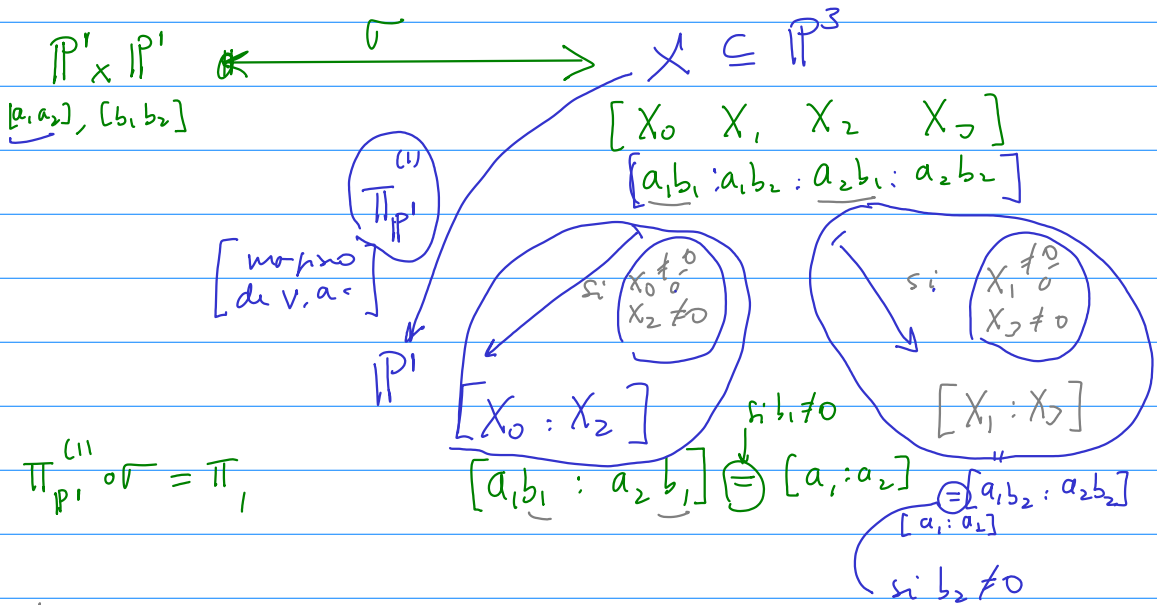 ℙ¹ × ℙ¹ ⟷ σ X ⊆ ℙ³
[a₁ a₂], [b₁ b₂]
[X₀ X₁ X₂ X₃]
[a₁b₁ : a₁b₂ : a₂b₁ : a₂b₂]
π_ℙ¹^(1)
[morfismo
de v.a.]
si X₀ ≠ 0 ó
X₂ ≠ 0
si X₁ ≠ 0 ó
X₃ ≠ 0
ℙ¹
[X₀ : X₂]
[X₁ : X₃]
si b₁ ≠ 0
π_ℙ¹^(1) ∘ σ = π₁
[a₁b₁ : a₂b₁] = [a₁ : a₂]
= [a₁b₂ : a₂b₂]
[a₁ : a₂]
si b₂ ≠ 0